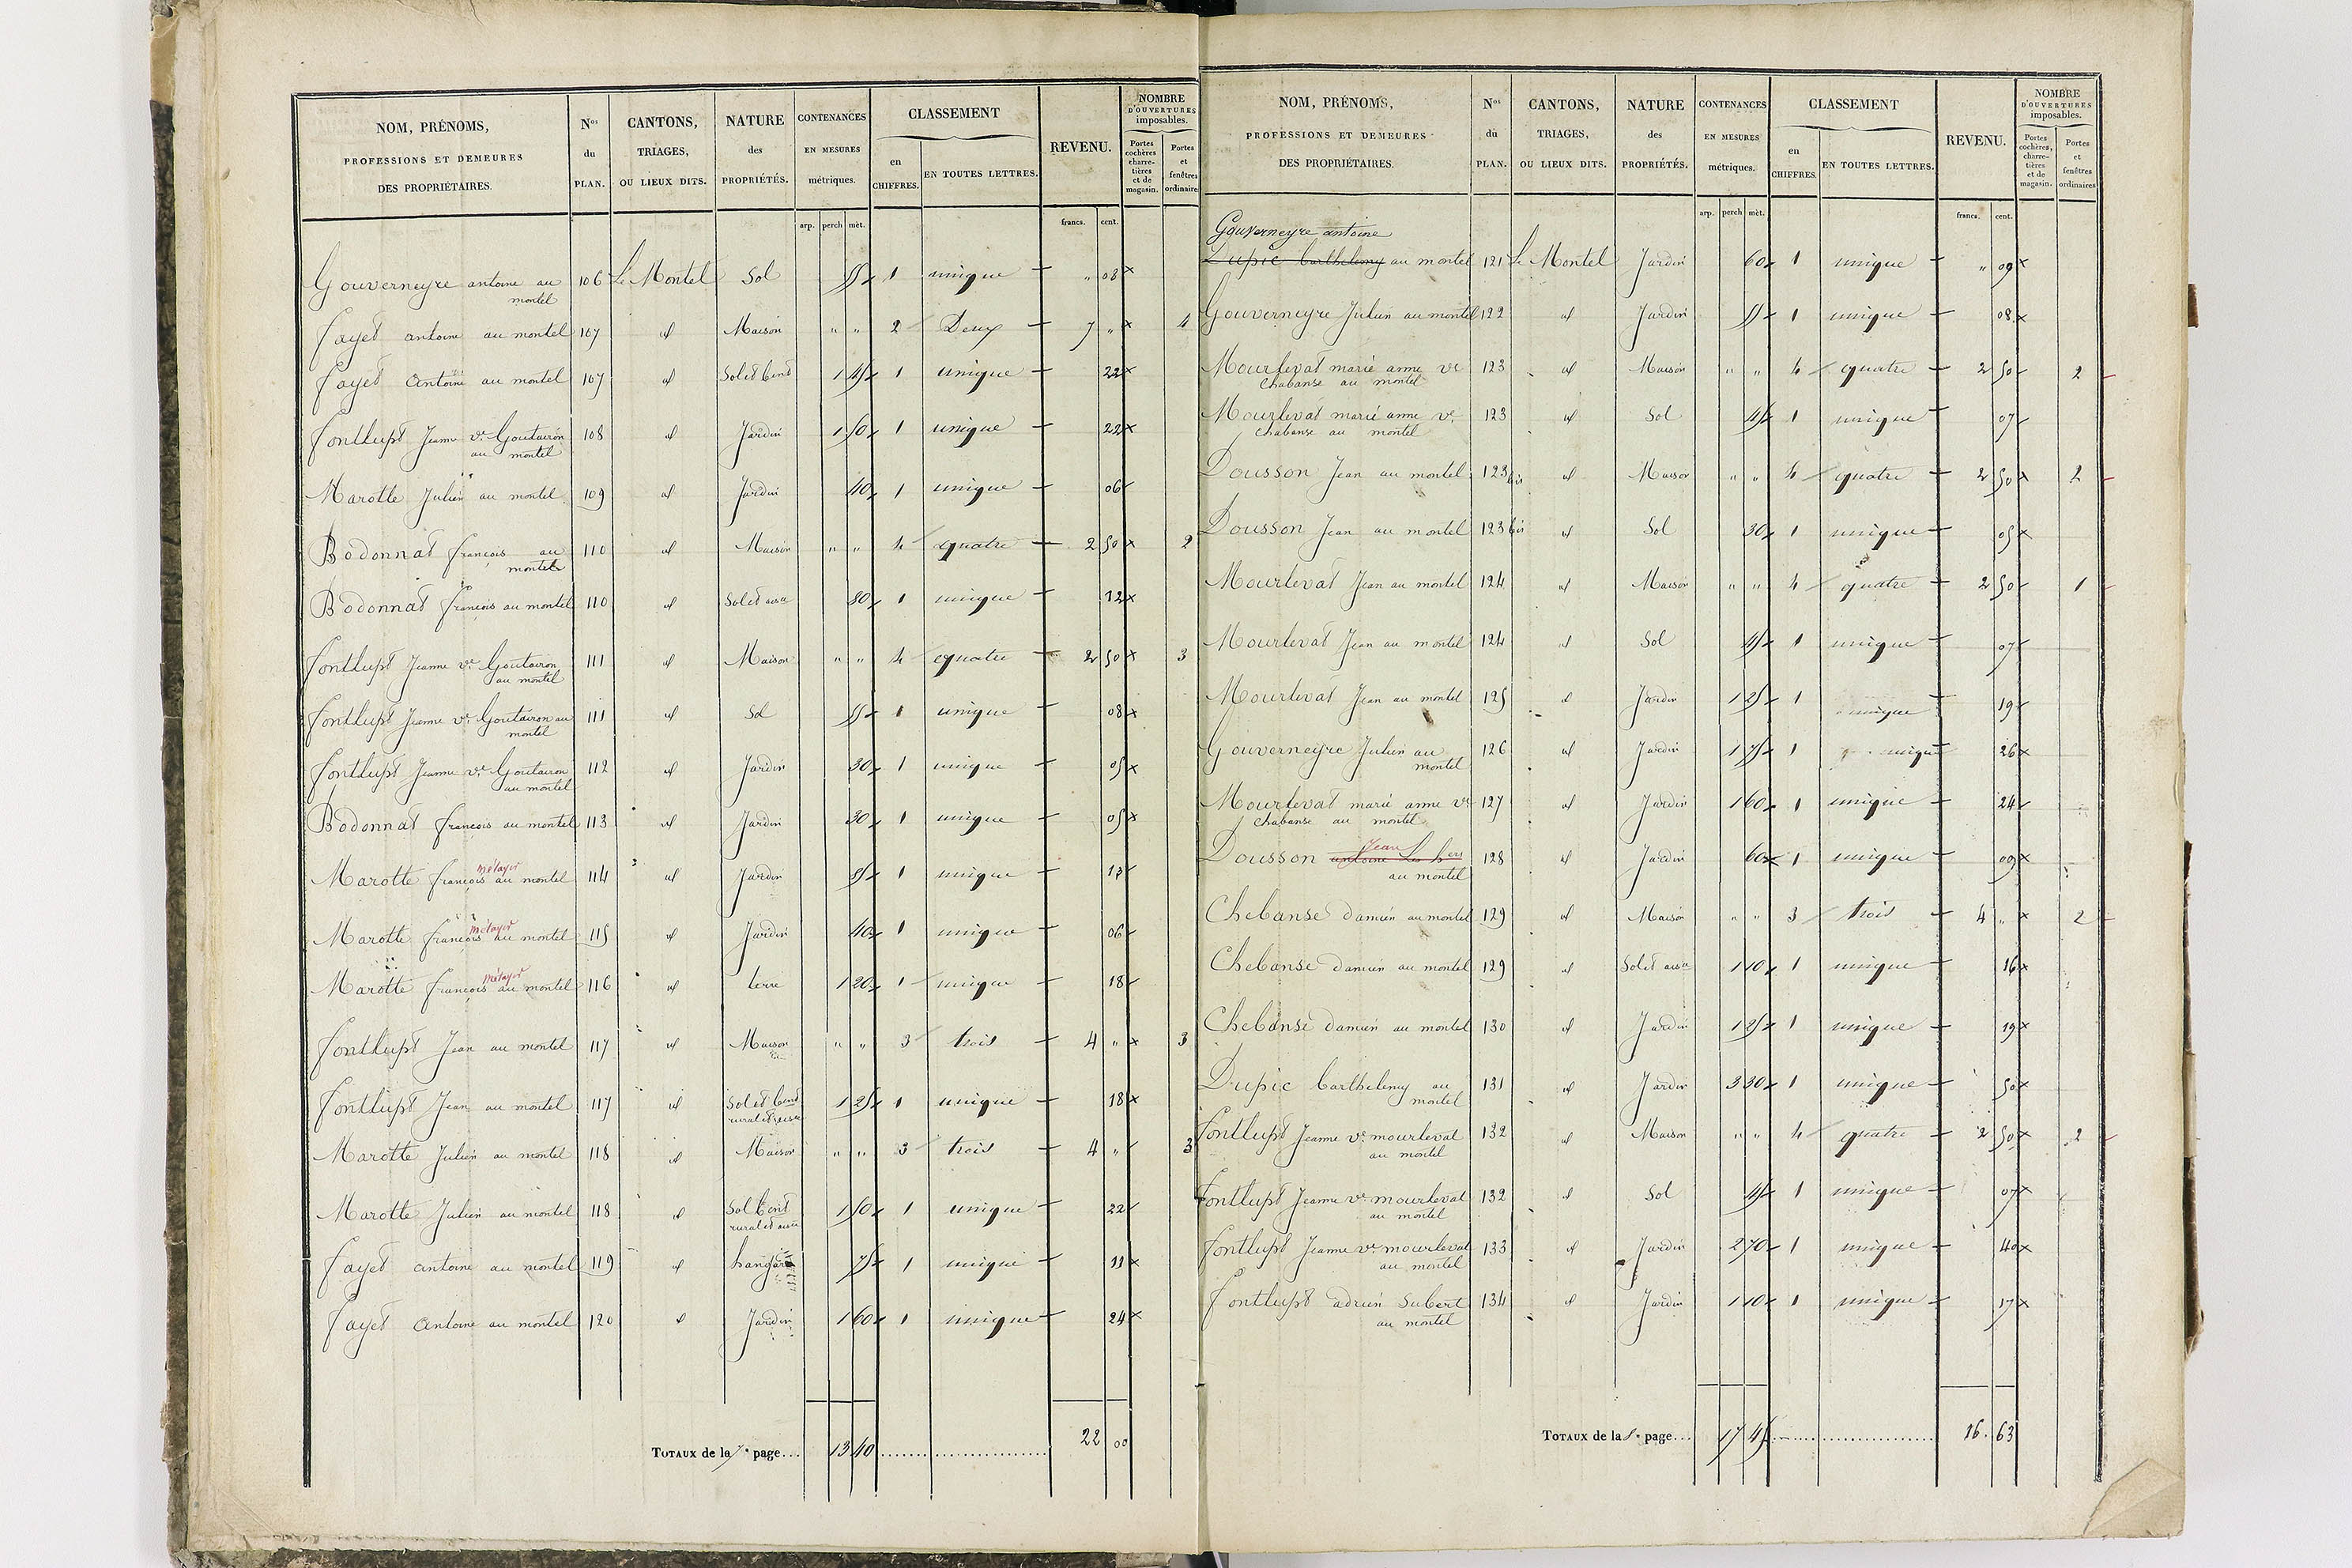 NOM, PRÉNOMS, PROFESSIONS ET DEMEURES DES PROPRIÉTAIRES. Nos du PLAN. CANTONS, TRIAGES, OU LIEUX DITS. NATURE des PROPRIÉTÉS. CONTENANCES EN MESURES métriques. CLASSEMENT en CHIFFRES. EN TOUTES LETTRES. REVENU. NOMBRE D'OUVERTURES imposables. Portes cochères charretières et de magasin. Portes et fenêtres ordinaires
arp. perch mèt. francs. cent.
Gouverneyre antoine au montel 106 Le Montel Sol 55 1 unique " 08
fayet antoine au montel 107 id Maison " " 2 Deux 7 " 4
fayet Antoine au montel 107 id Sol et bent 1 45 1 unique 22
fontlupt Jeanne ve Goutairon au montel 108 id Jardin 1 50 1 unique 22
Marotte Julien au montel 109 id Jardin 40 1 unique 06
Bodonnat françois au montel 110 id Maison " " 4 quatre 2 50 2
Bodonnat françois au montel 110 id Sol et aisce 80 1 unique 12
fontlupt Jeanne ve Goutairon au montel 111 id Maison " " 4 quatre 2 50 3
fontlupt Jeanne ve Goutairon au montel 111 id Sol 55 1 unique 08
fontlupt Jeanne ve Goutairon au montel 112 id Jardin 30 1 unique 05
Bodonnat françois au montel 113 id Jardin 30 1 unique 05
Marotte françois métayer au montel 114 id Jardin 85 1 unique 13
Marotte françois métayer au montel 115 id Jardin 40 1 unique 06
Marotte françois métayer au montel 116 id terre 1 20 1 unique 18
fontlupt Jean au montel 117 id Maison " " 3 trois 4 " 3
fontlupt Jean au montel 117 id Sol et bent rural et aisce 1 25 1 unique 18
Marotte Julien au montel 118 id Maison " " 3 trois 4 " 3
Marotte Julien au montel 118 id Sol bent rural et aisce 1 50 1 unique 22
fayet antoine au montel 119 id hangard 75 1 unique 11
fayet Antoine au montel 120 id Jardin 1 60 1 unique 24
TOTAUX de la 7e page... 13 40 22 00
NOM, PRÉNOMS, PROFESSIONS ET DEMEURES DES PROPRIÉTAIRES. Nos du PLAN. CANTONS, TRIAGES, OU LIEUX DITS. NATURE des PROPRIÉTÉS. CONTENANCES EN MESURES métriques. CLASSEMENT en CHIFFRES. EN TOUTES LETTRES. REVENU. NOMBRE D'OUVERTURES imposables. Portes cochères, charretières et de magasin. Portes et fenêtres ordinaires
arp. perch mèt. francs. cent.
Gouverneyre antoine
Dupic barthelemy au montel 121 Le Montel Jardin 60 1 unique " 09
Gouverneyre Julien au montel 122 id Jardin 55 1 unique 08
Mourlevat marie anne ve Chabanse au montel 123 id Maison " " 4 quatre 2 50 2
Mourlevat marie anne ve chabanse au montel 123 id Sol 45 1 unique 07
Dousson Jean au montel 123 bis id Maison " " 4 quatre 2 50 2
Dousson Jean au montel 123 bis id Sol 30 1 unique 05
Mourlevat Jean au montel 124 id Maison " " 4 quatre 2 50 1
Mourlevat Jean au montel 124 id Sol 45 1 unique 07
Mourlevat Jean au montel 125 id Jardin 1 25 1 unique 19
Gouverneyre Julien au montel 126 id Jardin 1 75 1 unique 26
Mourlevat marie anne ve chabanse au montel 127 id Jardin 1 60 1 unique 24
Dousson antoine Les hers Jean au montel 128 id Jardin 60 1 unique 09
Chebanse damien au montel 129 id Maison " " 3 trois 4 " 2
Chebanse damien au montel 129 id Sol et aisce 1 10 1 unique 16
Chebanse damien au montel 130 id Jardin 1 25 1 unique 19
Dupic barthelemy au montel 131 id Jardin 3 30 1 unique 50
fontlupt Jeanne ve mourlevat au montel 132 id Maison " " 4 quatre 2 50 2
fontlupt Jeanne ve mourlevat au montel 132 id Sol 45 1 unique 07
fontlupt Jeanne ve mourlevat au montel 133 id Jardin 2 70 1 unique 40
fontlupt adrien Subert au montel 134 id Jardin 1 10 1 unique 17
TOTAUX de la 8e page... 17 45 16 63